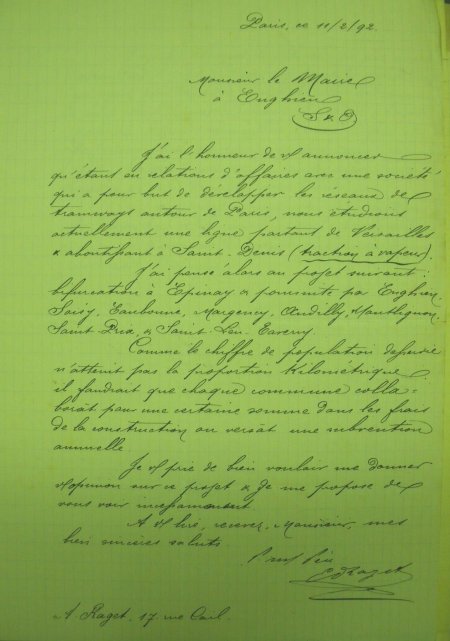 Paris, ce 11/2/92
Monsieur le Maire
à Enghien
S & O
J'ai l'honneur de V annoncer
qu'étant en relations d'affaires avec une société
qui a pour but de développer les réseaux de
tramways autour de Paris, nous étudions
actuellement une ligne partant de Versailles
& aboutissant à Saint-Denis (traction à vapeur).
J'ai pensé alors au projet suivant:
bifurcation à Epinay & poursuite par Enghien,
Soisy, Eaubonne, Margency, Andilly, Montlignon,
Saint Prix, & Saint Leu-Taverny.
Comme le chiffre de population desservie
n'atteint pas la proportion kilométrique
il faudrait que chaque commune colla-
borât pour une certaine somme dans les frais
de la construction ou versât une subvention
annuelle
Je V prie de bien vouloir me donner
V opinion sur ce projet & je me propose de
vous voir incessamment
A V lire, recevez, Monsieur, mes
bien sincères saluts.
Raget
A. Raget, 17 rue Cail.